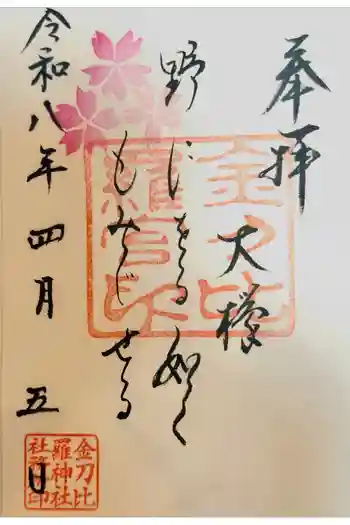 奉拝
大欅
野に 如く
もみぢせる
令和八年四月五日
金刀比
羅宮印
金刀比
羅神社
社務所印